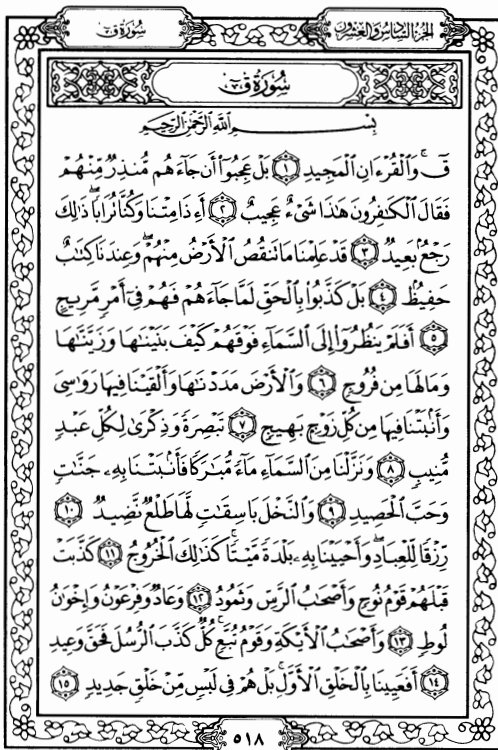 سُورَةُ قٓ
الجُزْءُ السَّادِسُ وَالعِشْرُونَ
سُورَةُ قٓ
بِسْمِ اللَّهِ الرَّحْمَٰنِ الرَّحِيمِ
قٓۚ وَالْقُرْءَانِ الْمَجِيدِ ١ بَلْ عَجِبُوٓا۟ أَن جَآءَهُم مُّنذِرٌ مِّنْهُمْ
فَقَالَ الْكَٰفِرُونَ هَٰذَا شَىْءٌ عَجِيبٌ ٢ أَءِذَا مِتْنَا وَكُنَّا تُرَابًاۖ ذَٰلِكَ
رَجْعٌۢ بَعِيدٌ ٣ قَدْ عَلِمْنَا مَا تَنقُصُ الْأَرْضُ مِنْهُمْۖ وَعِندَنَا كِتَٰبٌ
حَفِيظٌۢ ٤ بَلْ كَذَّبُوا۟ بِالْحَقِّ لَمَّا جَآءَهُمْ فَهُمْ فِىٓ أَمْرٍ مَّرِيجٍ
٥ أَفَلَمْ يَنظُرُوٓا۟ إِلَى السَّمَآءِ فَوْقَهُمْ كَيْفَ بَنَيْنَٰهَا وَزَيَّنَّٰهَا
وَمَا لَهَا مِن فُرُوجٍ ٦ وَالْأَرْضَ مَدَدْنَٰهَا وَأَلْقَيْنَا فِيهَا رَوَٰسِىَ
وَأَنۢبَتْنَا فِيهَا مِن كُلِّ زَوْجٍۭ بَهِيجٍ ٧ تَبْصِرَةً وَذِكْرَىٰ لِكُلِّ عَبْدٍ
مُّنِيبٍ ٨ وَنَزَّلْنَا مِنَ السَّمَآءِ مَآءً مُّبَٰرَكًا فَأَنۢبَتْنَا بِهِۦ جَنَّٰتٍ
وَحَبَّ الْحَصِيدِ ٩ وَالنَّخْلَ بَاسِقَٰتٍ لَّهَا طَلْعٌ نَّضِيدٌ ١٠
رِّزْقًا لِّلْعِبَادِۖ وَأَحْيَيْنَا بِهِۦ بَلْدَةً مَّيْتًاۚ كَذَٰلِكَ الْخُرُوجُ ١١ كَذَّبَتْ
قَبْلَهُمْ قَوْمُ نُوحٍ وَأَصْحَٰبُ الرَّسِّ وَثَمُودُ ١٢ وَعَادٌ وَفِرْعَوْنُ وَإِخْوَٰنُ
لُوطٍ ١٣ وَأَصْحَٰبُ الْأَيْكَةِ وَقَوْمُ تُبَّعٍۚ كُلٌّ كَذَّبَ الرُّسُلَ فَحَقَّ وَعِيدِ
١٤ أَفَعَيِينَا بِالْخَلْقِ الْأَوَّلِۚ بَلْ هُمْ فِى لَبْسٍ مِّنْ خَلْقٍ جَدِيدٍ ١٥
٥١٨